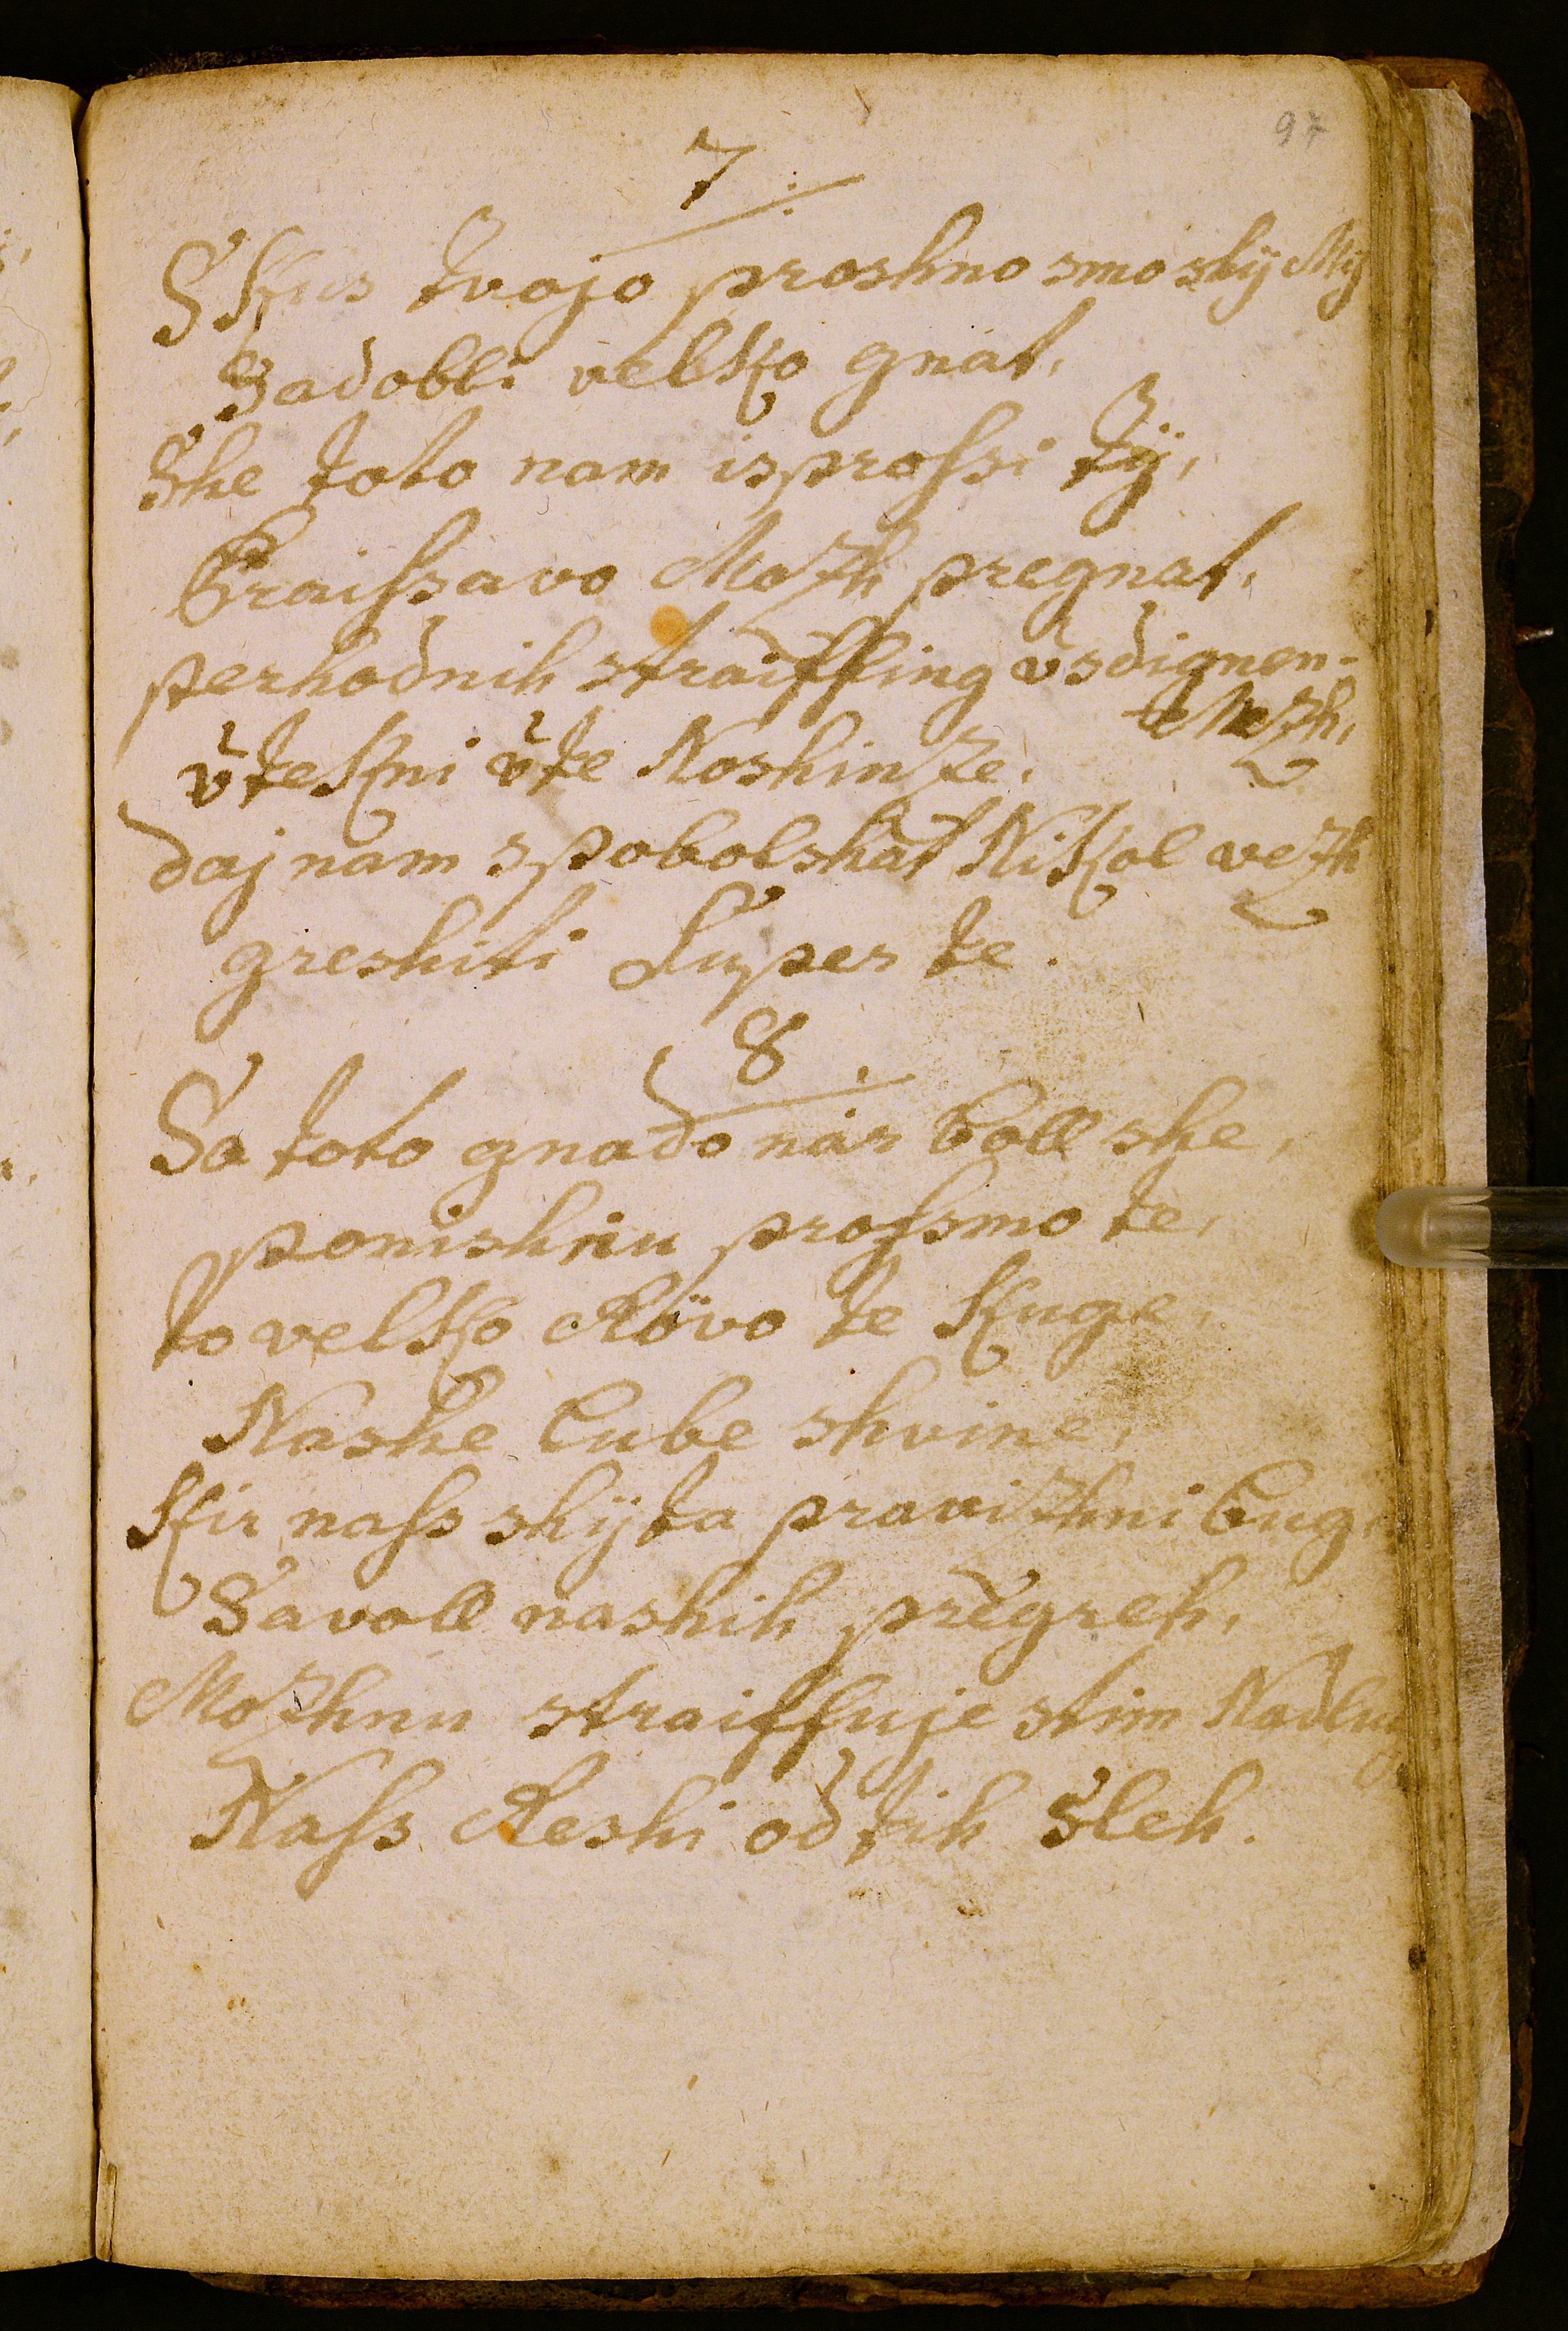 97
7.
Skus tvojo proshno smo shÿ Mÿ
Sadobli velko gnat,
She toto nam isprossi tÿ,
Graissavo Mozh pregnat,
perhodnih straiffing üsdignen-
te Mezh,
ŭtekni ŭte Noshinze,
daj nam spobolshat Nikol vezh
greshiti Super te.
8.
Sa toto gnado nas boll she,
ponishnu prossmo te,
to velko Rövo te kuge,
Nashe lube shvine,
kir nass shÿta pravizhni Bug
Savoll nashih pregreh,
Mozhnu straiffuje stim
Nass Reshi od tih sleh.